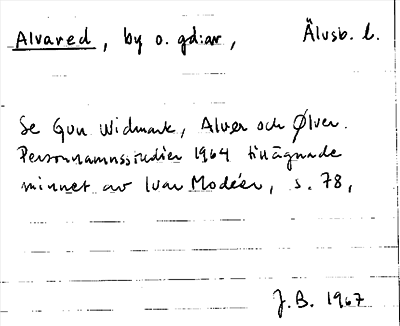 Alvared, by o. gd:ar, Älvsb. l.
Se Gun Widmark, Alver och Ølver.
Personnamnsstudier 1964 tillägnade
minnet av Ivar Modéer, s. 78,
J.B. 1967